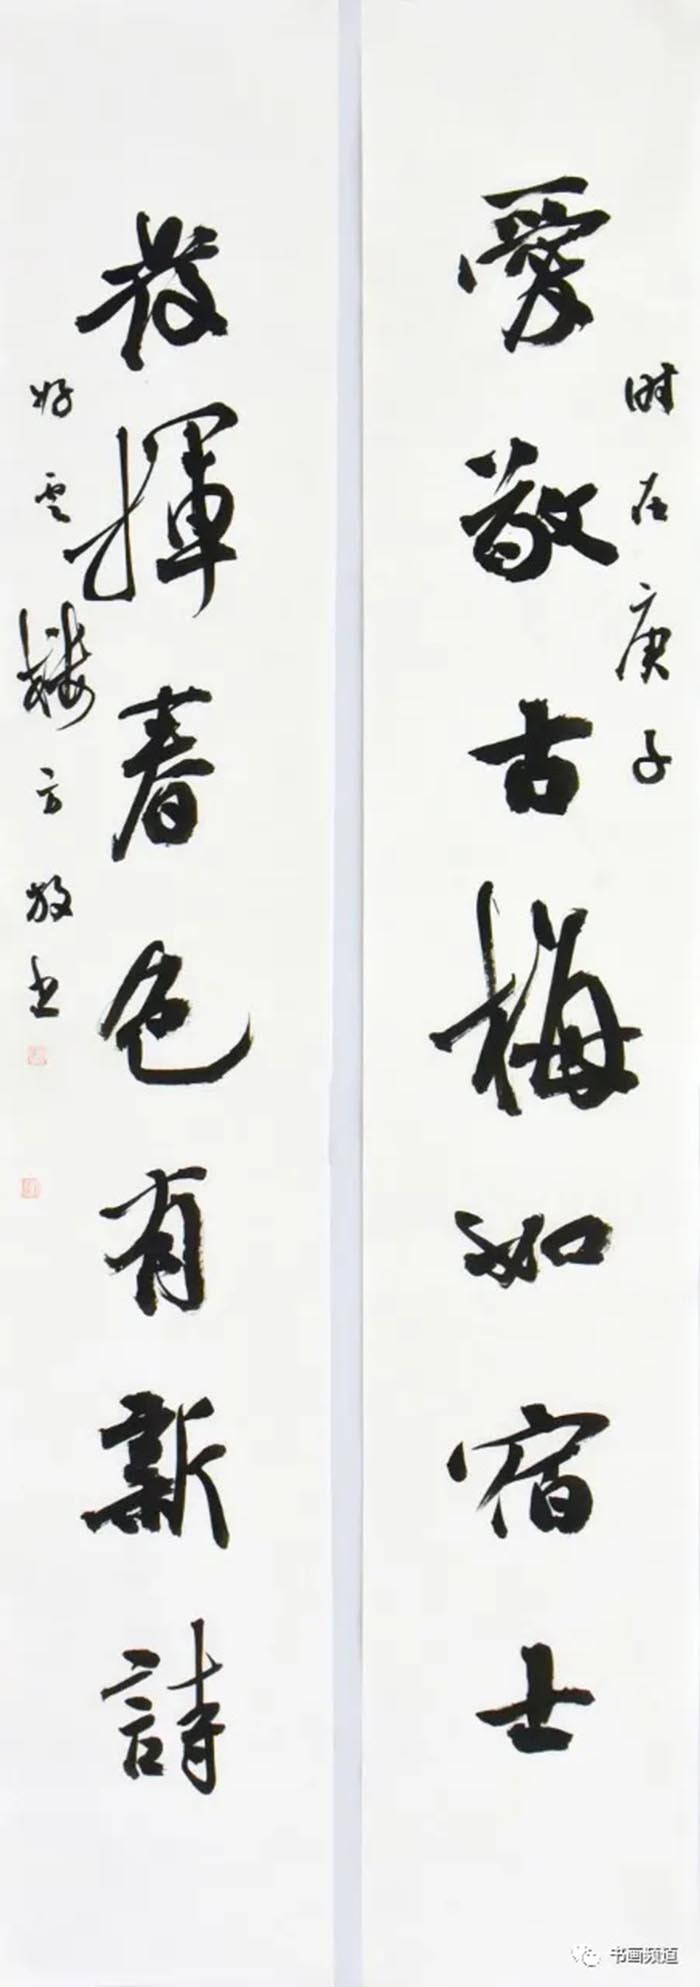 时在庚子
愛敬古梅如宿士
發揮春色有新詩
好雲樓方放书
书画频道